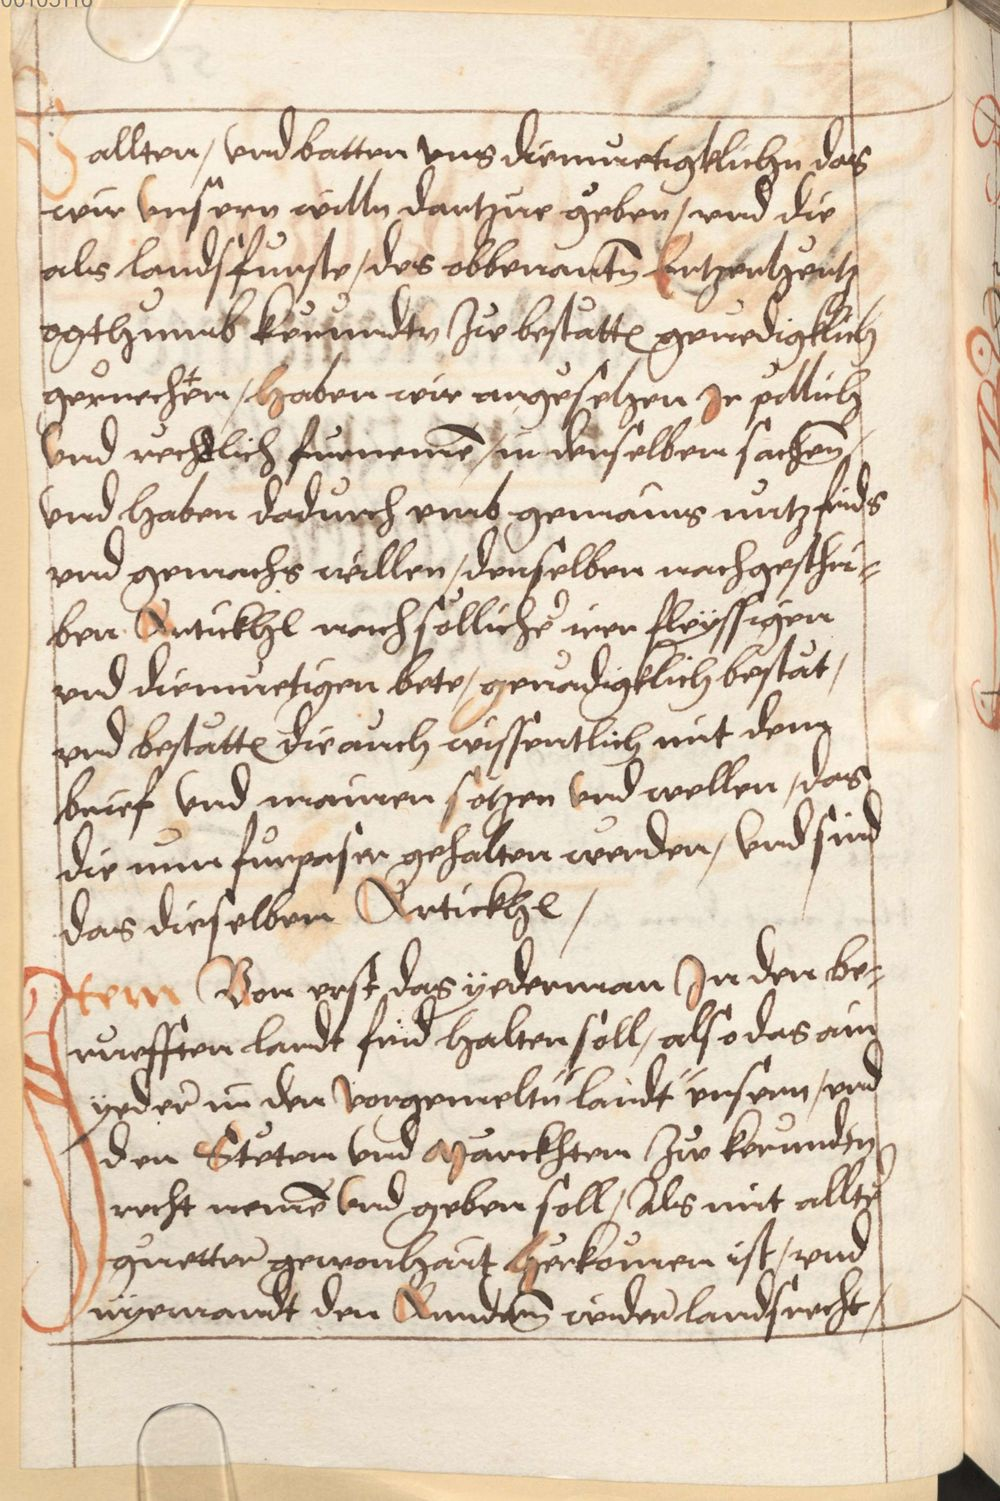 allten / vnd batten vns diemuetigklichn das
wir vnsern willn dartzue geben / vnd die
als landsfurste / des obbenantn Ertzhertz
ogthumb kerndtn zue bestatt genedigklich
geruechten / haben wir angesehen Ir pillich
Vnd rechtlich furneme / in denselben sachen /
vnd haben dadurch vmb gemains nutz frids
vnd gemachs willen / denselben nachgeschri-
ben Artickhl nach sölliche irer fleyssigen
vnd diemuetigen bete / genadigklich bestat /
vnd bestatt die auch wissentlich mit dem
brief vnd mainen setzen vnd wellen / das
die nun furpaser gehalten werden / Vnd sind
das dieselben Artickhl /
Item Von erst das yederman In den be-
rueften landt frid halten soll / also das ain
yeder in den vorgemeltn landt vnsern / vnd
den Steten vnd Marckhten zue kerndtn
recht neme vnd geben soll / Als mit allter
guetter gewonhait herkomen ist / vnd
nyemandt den Anndern wider landsrecht /